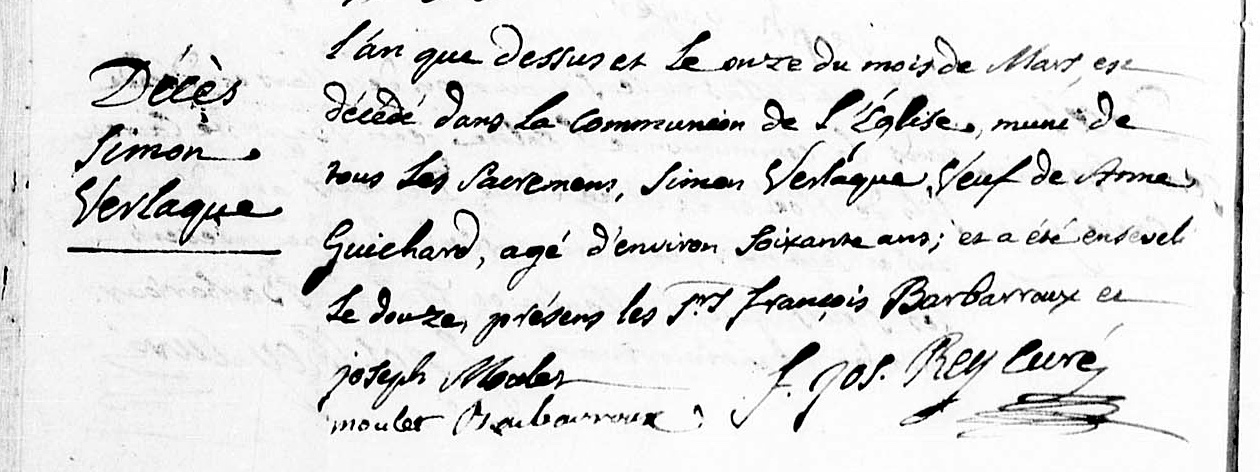 Décès
Simon
Verlaque
l'an que dessus et le onze du mois de Mars, est
décédé dans la communion de l'Église, muni de
tous les sacremens, Simon Verlaque, veuf de Anne
Guichard, agé d'environ soixante ans; et a été enseveli
le douze, présens les Srs françois Barbarroux et
joseph Moulet
f. jos. Rey curé
moulet Barbarroux